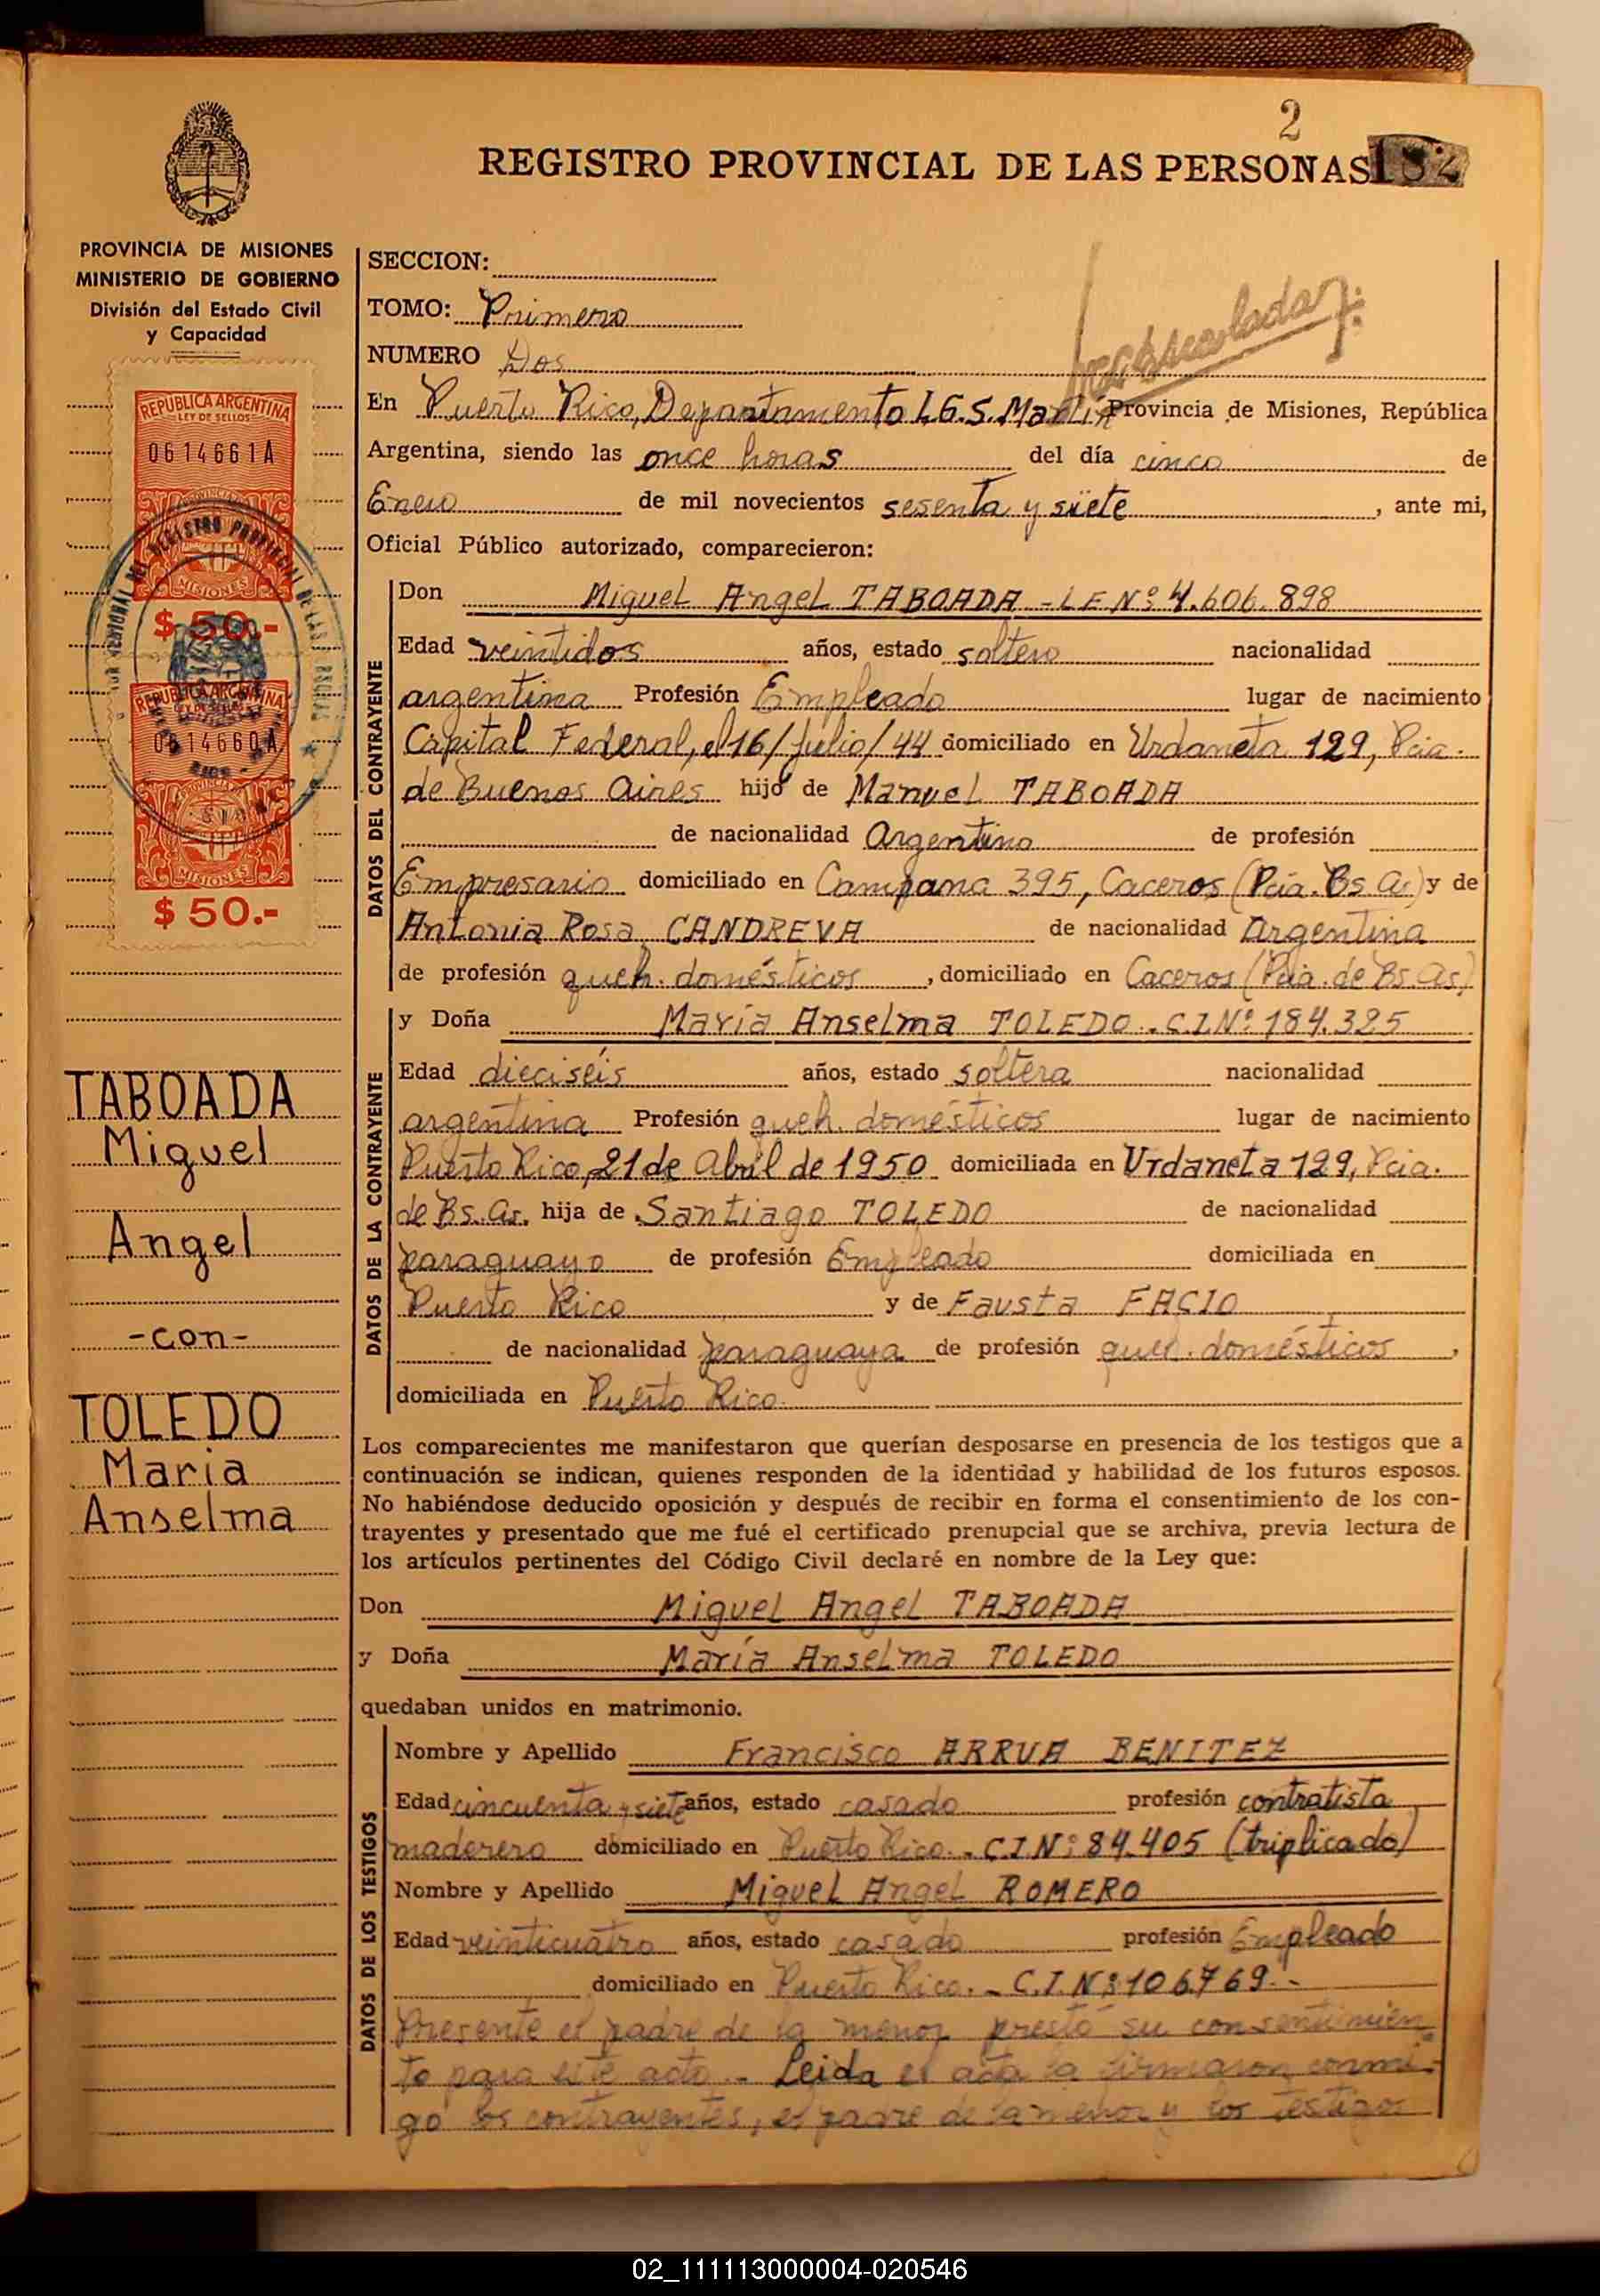 2
REGISTRO PROVINCIAL DE LAS PERSONAS 182
PROVINCIA DE MISIONES
MINISTERIO DE GOBIERNO
División del Estado Civil
y Capacidad
REPUBLICA ARGENTINA
LEY DE SELLOS
0614661A
MISIONES
$ 50.-
REPUBLICA ARGENTINA
LEY DE SELLOS
0614660A
MISIONES
$ 50.-
TABOADA
Miguel
Angel
-con-
TOLEDO
Maria
Anselma
SECCION:
TOMO: Primero
NUMERO Dos
En Puerto Rico, Departamento L.G.S. Martín Provincia de Misiones, República
Argentina, siendo las once horas del día cinco de
Enero de mil novecientos sesenta y siete, ante mi,
Oficial Público autorizado, comparecieron:
DATOS DEL CONTRAYENTE
Don Miguel Angel TABOADA - L E Nº 4.606.898
Edad veintidos años, estado soltero nacionalidad
argentina Profesión Empleado lugar de nacimiento
Capital Federal, el 16/julio/44 domiciliado en Urdaneta 129, Pcia.
de Buenos Aires hijo de Manuel TABOADA
de nacionalidad Argentino de profesión
Empresario domiciliado en Campana 395, Caceros (Pcia. Bs As) y de
Antonia Rosa CANDREVA de nacionalidad Argentina
de profesión queh. domésticos, domiciliado en Caceros (Pcia. de Bs. As)
DATOS DE LA CONTRAYENTE
y Doña María Anselma TOLEDO - C.I.Nº 184.325
Edad dieciséis años, estado soltera nacionalidad
argentina Profesión queh. domésticos lugar de nacimiento
Puerto Rico, 21 de Abril de 1950 domiciliada en Urdaneta 129, Pcia.
de Bs. As. hija de Santiago TOLEDO de nacionalidad
paraguayo de profesión Empleado domiciliada en
Puerto Rico y de Fausta FACIO
de nacionalidad paraguaya de profesión queh. domésticos,
domiciliada en Puerto Rico.
Los comparecientes me manifestaron que querían desposarse en presencia de los testigos que a
continuación se indican, quienes responden de la identidad y habilidad de los futuros esposos.
No habiéndose deducido oposición y después de recibir en forma el consentimiento de los con-
trayentes y presentado que me fué el certificado prenupcial que se archiva, previa lectura de
los artículos pertinentes del Código Civil declaré en nombre de la Ley que:
Don Miguel Angel TABOADA
y Doña María Anselma TOLEDO
quedaban unidos en matrimonio.
DATOS DE LOS TESTIGOS
Nombre y Apellido Francisco ARRUA BENITEZ
Edad cincuenta y siete años, estado casado profesión contratista
maderero domiciliado en Puerto Rico. - C.I.Nº 84.405 (triplicado)
Nombre y Apellido Miguel Angel ROMERO
Edad veinticuatro años, estado casado profesión Empleado
domiciliado en Puerto Rico. - C.I.Nº 106.769.-
Presente el padre de la menor prestó su consentimien
to para este acto. - Leida el acta la firmaron conmi-
go los contrayentes, el padre de la menor y los testigos
02_111113000004-020546